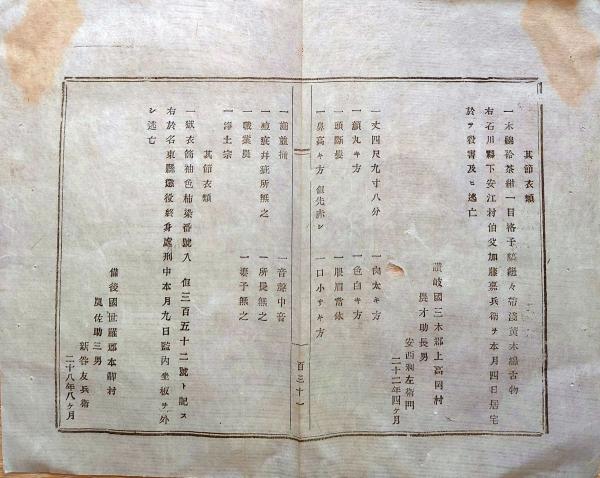 其節衣類
一木綿袷茶紺一目格子縞纏々帶淺黃木綿古物
右石川縣下安江村伯父加藤嘉兵衛ヲ本月四日居宅
於ヲ殺害及ヒ逃亡
讃岐國三木郡上高岡村
農才助長男
安西利左衛門
二十二年四ヶ月
一丈四尺九寸八分
一肉太キ方
一顔丸キ方
一色白キ方
一頭斬髮
一眼眉常体
一鼻高キ方 但先赤シ
一口小サキ方
百三十一
一齒並揃
一音聲中音
一疱痕并疵所無之
一所長無之
一職業農
一妻子無之
一淨土宗
其節衣類
一獄衣筒袖色柿染番號八 但三百五十二號ト記ス
右於名東縣懲役終身處刑中本月九日監內坐板ヲ外
シ逃亡
備後國世羅郡本鄕村
農佐助三男
新谷友兵衛
二十八年八ヶ月